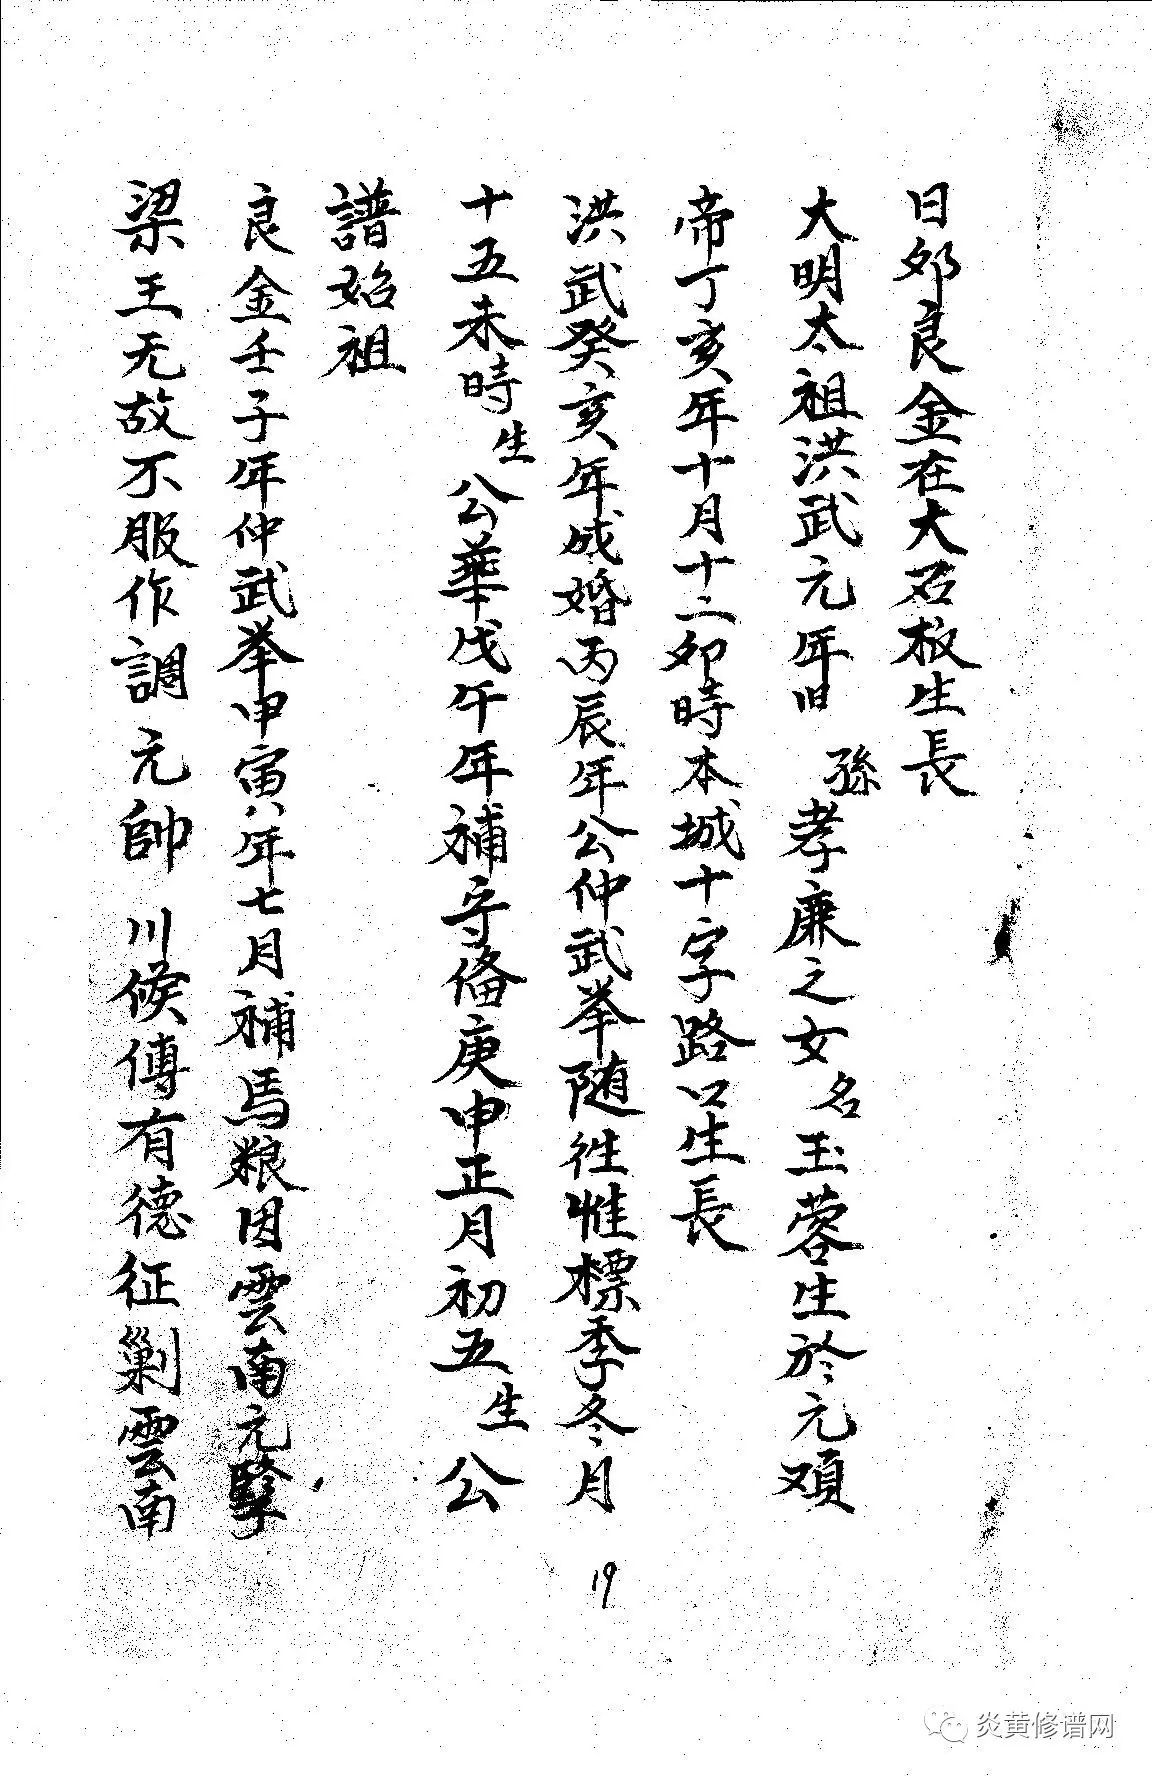 日郊良金在大石板生長
大明太祖洪武元年旧孫孝廉之女名玉蓉生於元順
帝丁亥年十月十二卯時本城十字路口生長
洪武癸亥年成婚丙辰年公仲武举随往惟標季冬月
十五未時生公華戊午年補守俻庚申正月初五生公
譜始祖
良金壬子年仲武举申寅八年七月補馬粮因雲南元孽
梁王无故不服作調元帥川候傅有德征剿雲南
19
炎黄修谱网